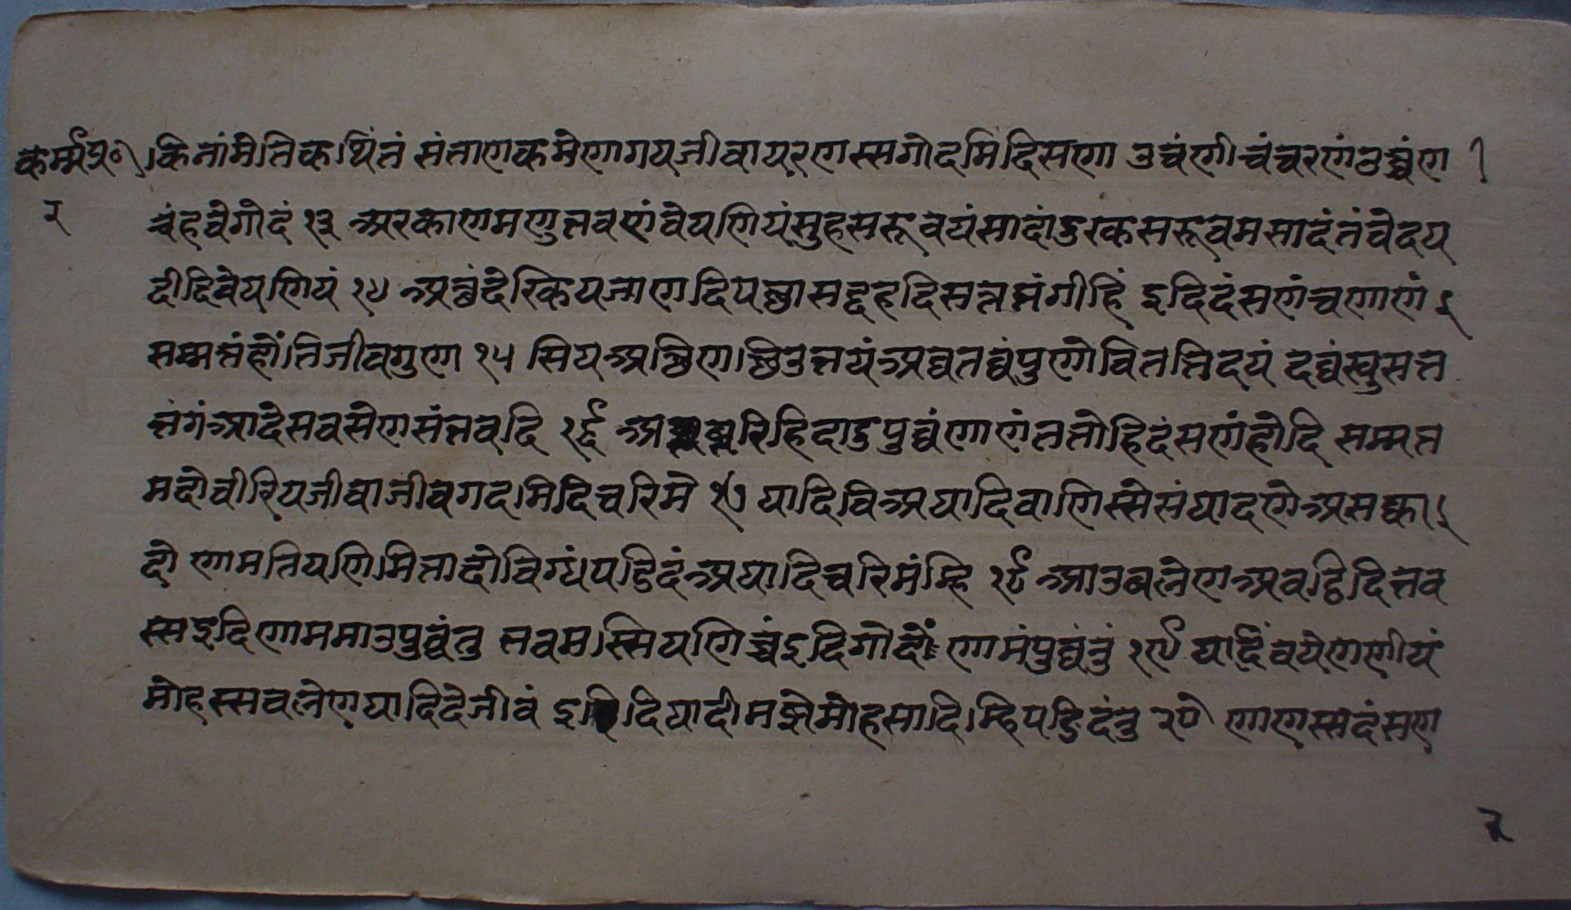 कर्म्मप्र० किनांमेतिकथिंतं संताणकमेणागयजीवायरणस्सगोदमिदिसणा उच्चंणीचंचरणंउच्चंण
२ चंहवेगोदं १३ अरकाणमणुभवणंवेयणियंसुहसरूवयंसादंदुरकसरूवमसादंतंवेदय
दीदिवेयणियं १४ अत्थंदेरकियजाणदिपछासद्दहदिसत्तभंगीहिं इदिदंसणंचणाणं
सम्मत्तंहोंतिजीवगुणा १५ सियअत्थिणत्थिउभयंअव्वतव्वंपुणोवितत्तिदयं दव्वंखुसत्त
भंगंआदेसवसेणसंभवदि १६ अब्भरिहिदादुपुव्वंणाणंततोहिदंसणंहोदि सम्मत्त
मदोवीरियजीवाजीवगदमिदिचरिमे १७ घादिविअघादिवाणिस्सेसंघादणेअसक्का
दो णामतियणिमित्तादोविग्घंपडिदंअघादिचरिमंम्हि १८ आउबलेणअवट्ठिदिभव
स्सइदिणाममाउपुव्वंतु भवमस्सियणिच्चंइदिगोदं णामंपुव्वंतुं १९ घादिंवयेणणीयं
मोहस्सबलेणघाददेजीवं इदिघादीमझेमोहसादिम्हिपडिदंतु २० णाणस्सदंसण
२